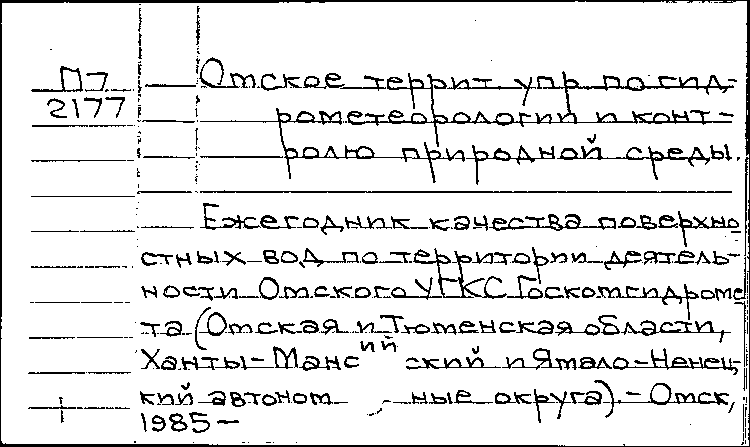 П7
2177
Омское террит. упр. по гид-
рометеорологии и конт-
ролю природной среды.
Ежегодник качества поверхно
стных вод по территории деятель-
ности Омского УГКС Госкомгидроме
та (Омская и Тюменская области,
Ханты-Мансийский и Ямало-Ненец-
кий автоном ные округа). - Омск,
1985 -